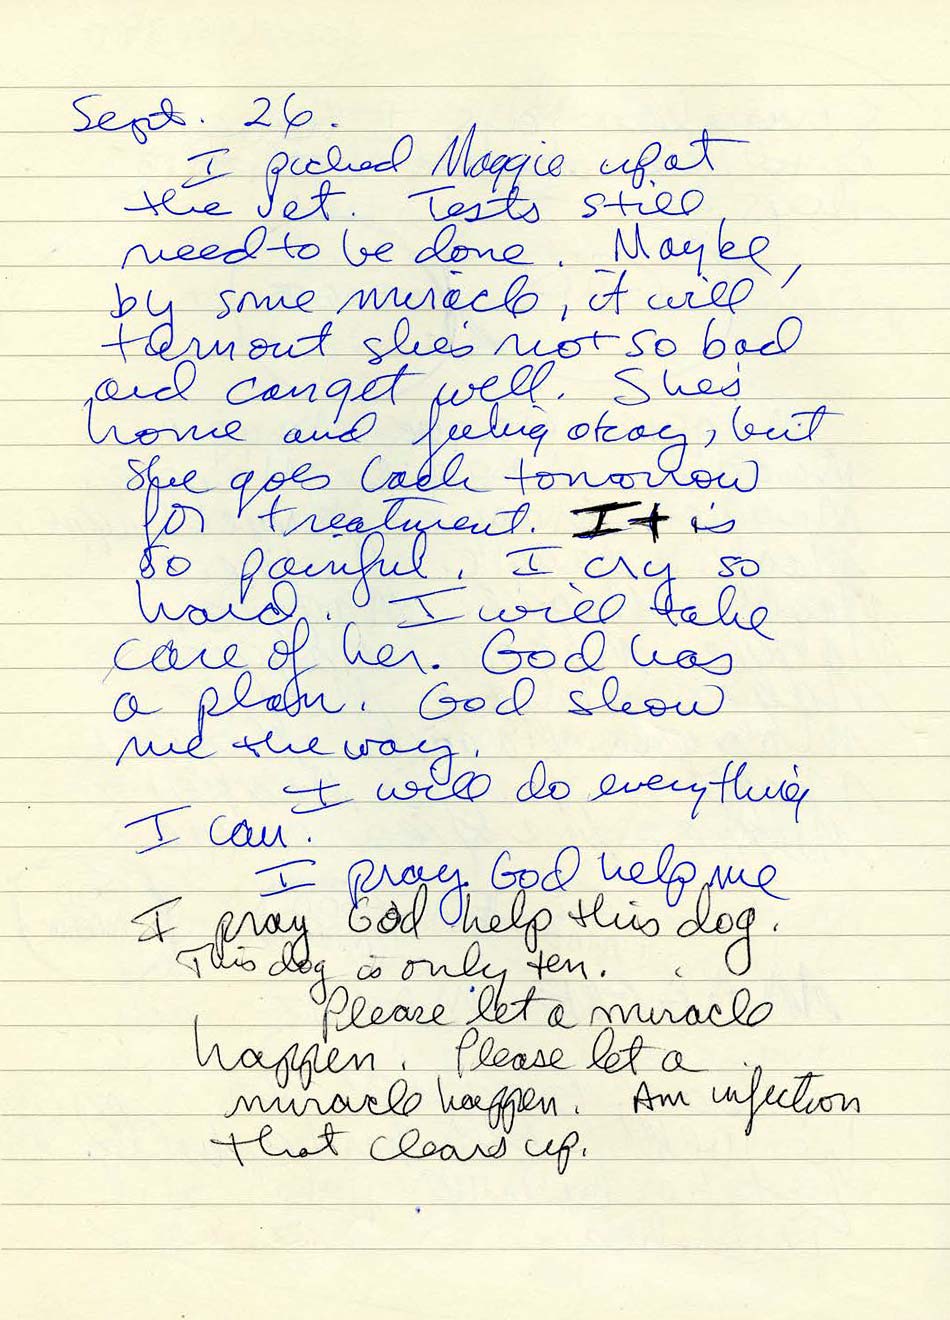 Sept. 26.
I picked Maggie up at
the vet. Tests still
need to be done. Maybe,
by some miracle, it will
turn out she's not so bad
and can get well. She's
home and feeling okay, but
she goes back tomorrow
for treatment. It is
so painful. I cry so
hard. I will take
care of her. God has
a plan. God show
me the way.
I will do everything
I can.
I pray God help me
I pray God help this dog.
This dog is only ten.
Please let a miracle
happen. Please let a
miracle happen. An infection
that clears up.